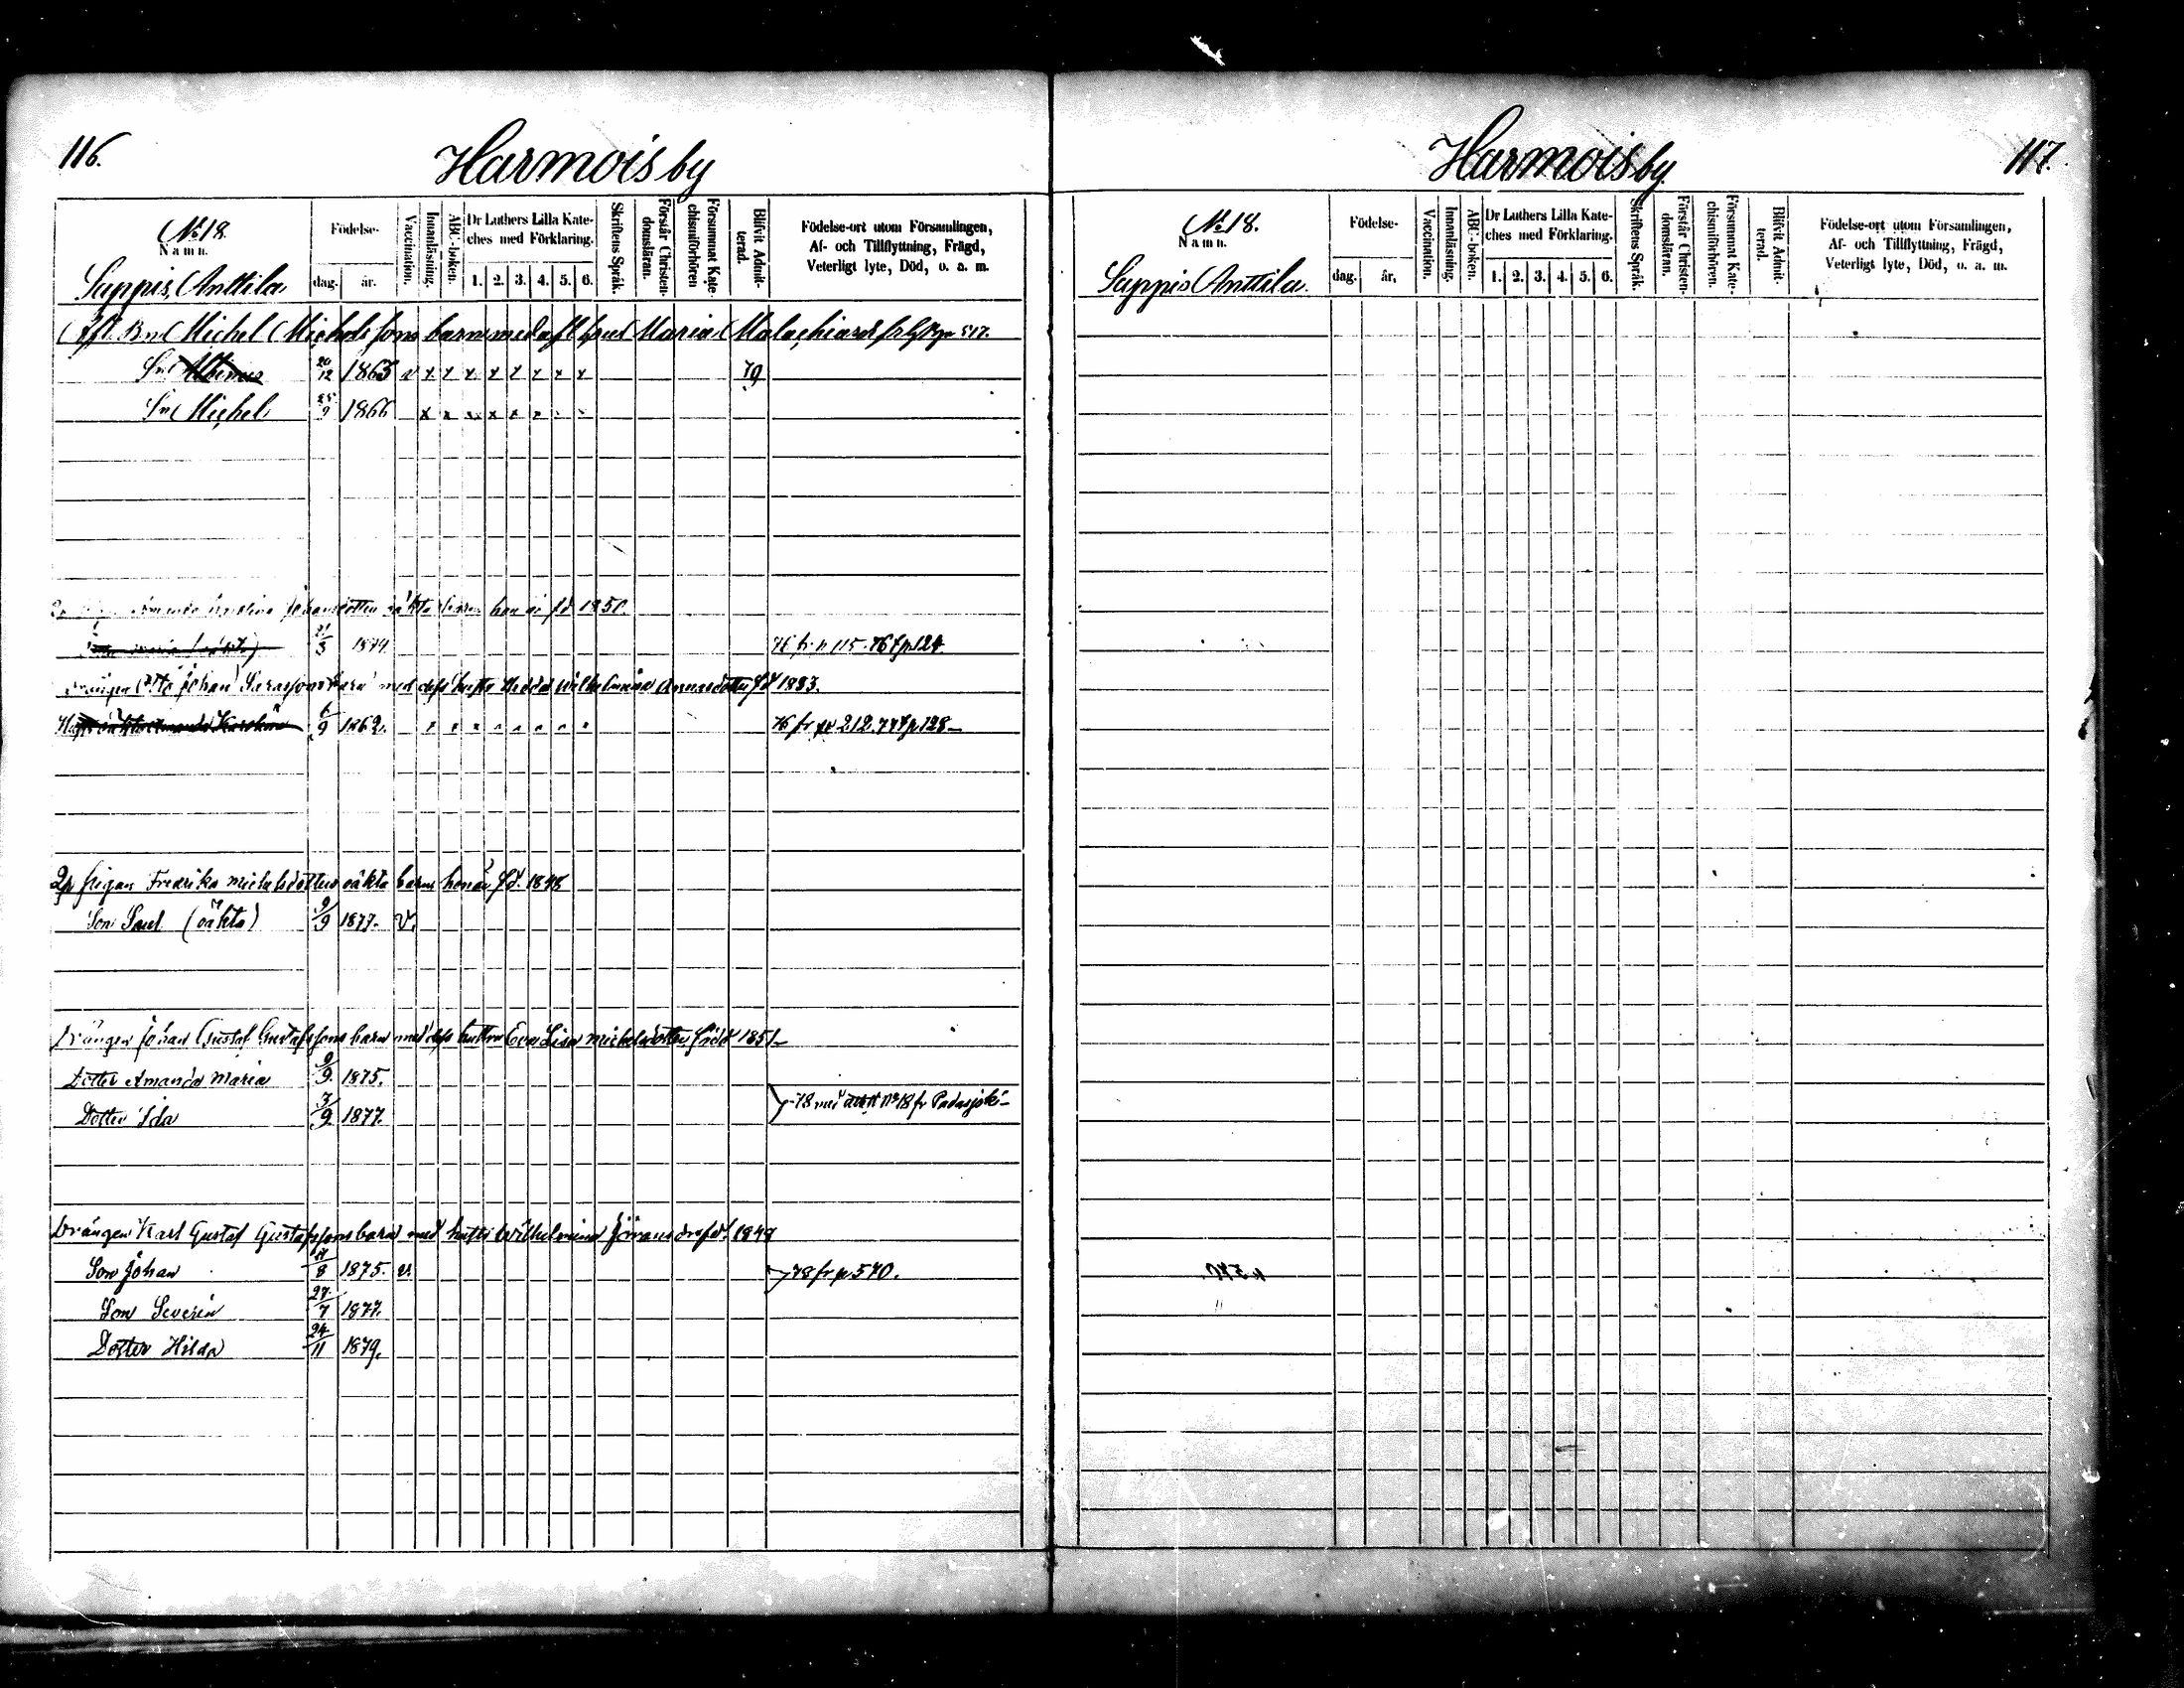 116.
Harmois by
No 18.
Namn.
Suppis, Anttila
Födelse-
dag.
år.
Vaccination.
Innanläsning.
ABC-boken.
Dr Luthers Lilla Kate-
ches med Förklaring.
1. 2. 3. 4. 5. 6.
Skriftens Språk.
Förstår Christen-
domsläran.
Försummat Kate-
chismiförhören
Blifvit Admit-
terad.
Födelse-ort utom Församlingen,
Af- och Tillflyttning, Frägd,
Veterligt lyte, Död, o. a. m.
Afl. Bn Michel Michelssons barn med afl hust Maria Malachiasdr
Sn 20/12 1863 v x x x x x x x x 79
Sn Michel 25/9 1866 x x x x x x
Johansdotters oäkta barn hon är fd 1850.
21/3 1874. 76 fr p 115. 76 t p 124.
Drängen Otto Johan barn med dess hustru Hedda Wilhelmina fd 1833.
oäkta Amanda Karolina 6/9 1862. 76 fr p 212. 77 t p 128
2 p pigan Fredrika Michelsdotters oäkta barn hon är fd. 1848
Son Saul (oäkta) 9/9 1877. v.
Drängen Johan Gustaf Gustafssons barn med dess hustru Eva Lisa Michelsdotter född 1851
Dotter Amanda Maria 9/9. 1875.
Dotter Ida 7/9 1877. 78 med No 18 fr Padasjoki
Drängen Karl Gustaf Gustafssons barn med hustru Wilhelmina fd. 1849
Son Johan /8 1875. v. 78 fr p 570.
Son Severin 27/7 1877.
Dotter Hilda 24/11 1879.
Harmois by
117.
No 18.
Namn.
Suppis Anttila.
Födelse-
dag.
år.
Vaccination.
Innanläsning.
ABC-boken.
Dr Luthers Lilla Kate-
ches med Förklaring.
1. 2. 3. 4. 5. 6.
Skriftens Språk.
Förstår Christen-
domsläran.
Försummat Kate-
chismiförhören.
Blifvit Admit-
terad.
Födelse-ort utom Församlingen,
Af- och Tillflyttning, Frägd,
Veterligt lyte, Död, o. a. m.